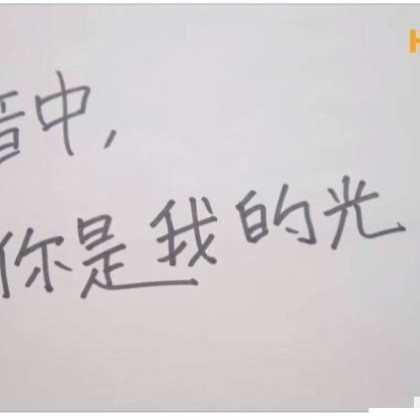 中,
你是我的光